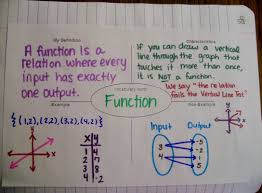 My Definition
A function is a
relation where every
input has exactly
one output.
Characteristics
If you can draw a vertical
line through the graph that
touches it more than once,
it is NOT a function.
We say "the relation
fails the Vertical Line Test"
Vocabulary Term
Function
Example
{(1,2),(2,2),(3,2),(4,2)}
x y
1 4
2 7
4 -8
7 -2
Non-Example
Input Output
3
4
-5
-2
1
5